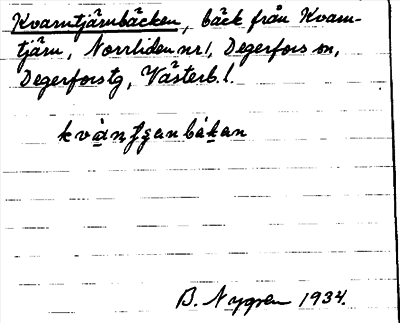 Kvarntjärnbäcken, bäck från Kvarn-
tjärn, Norrliden nr 1, Degerfors sn,
Degerfors tg, Västerb. l.
B. Nygren 1934.